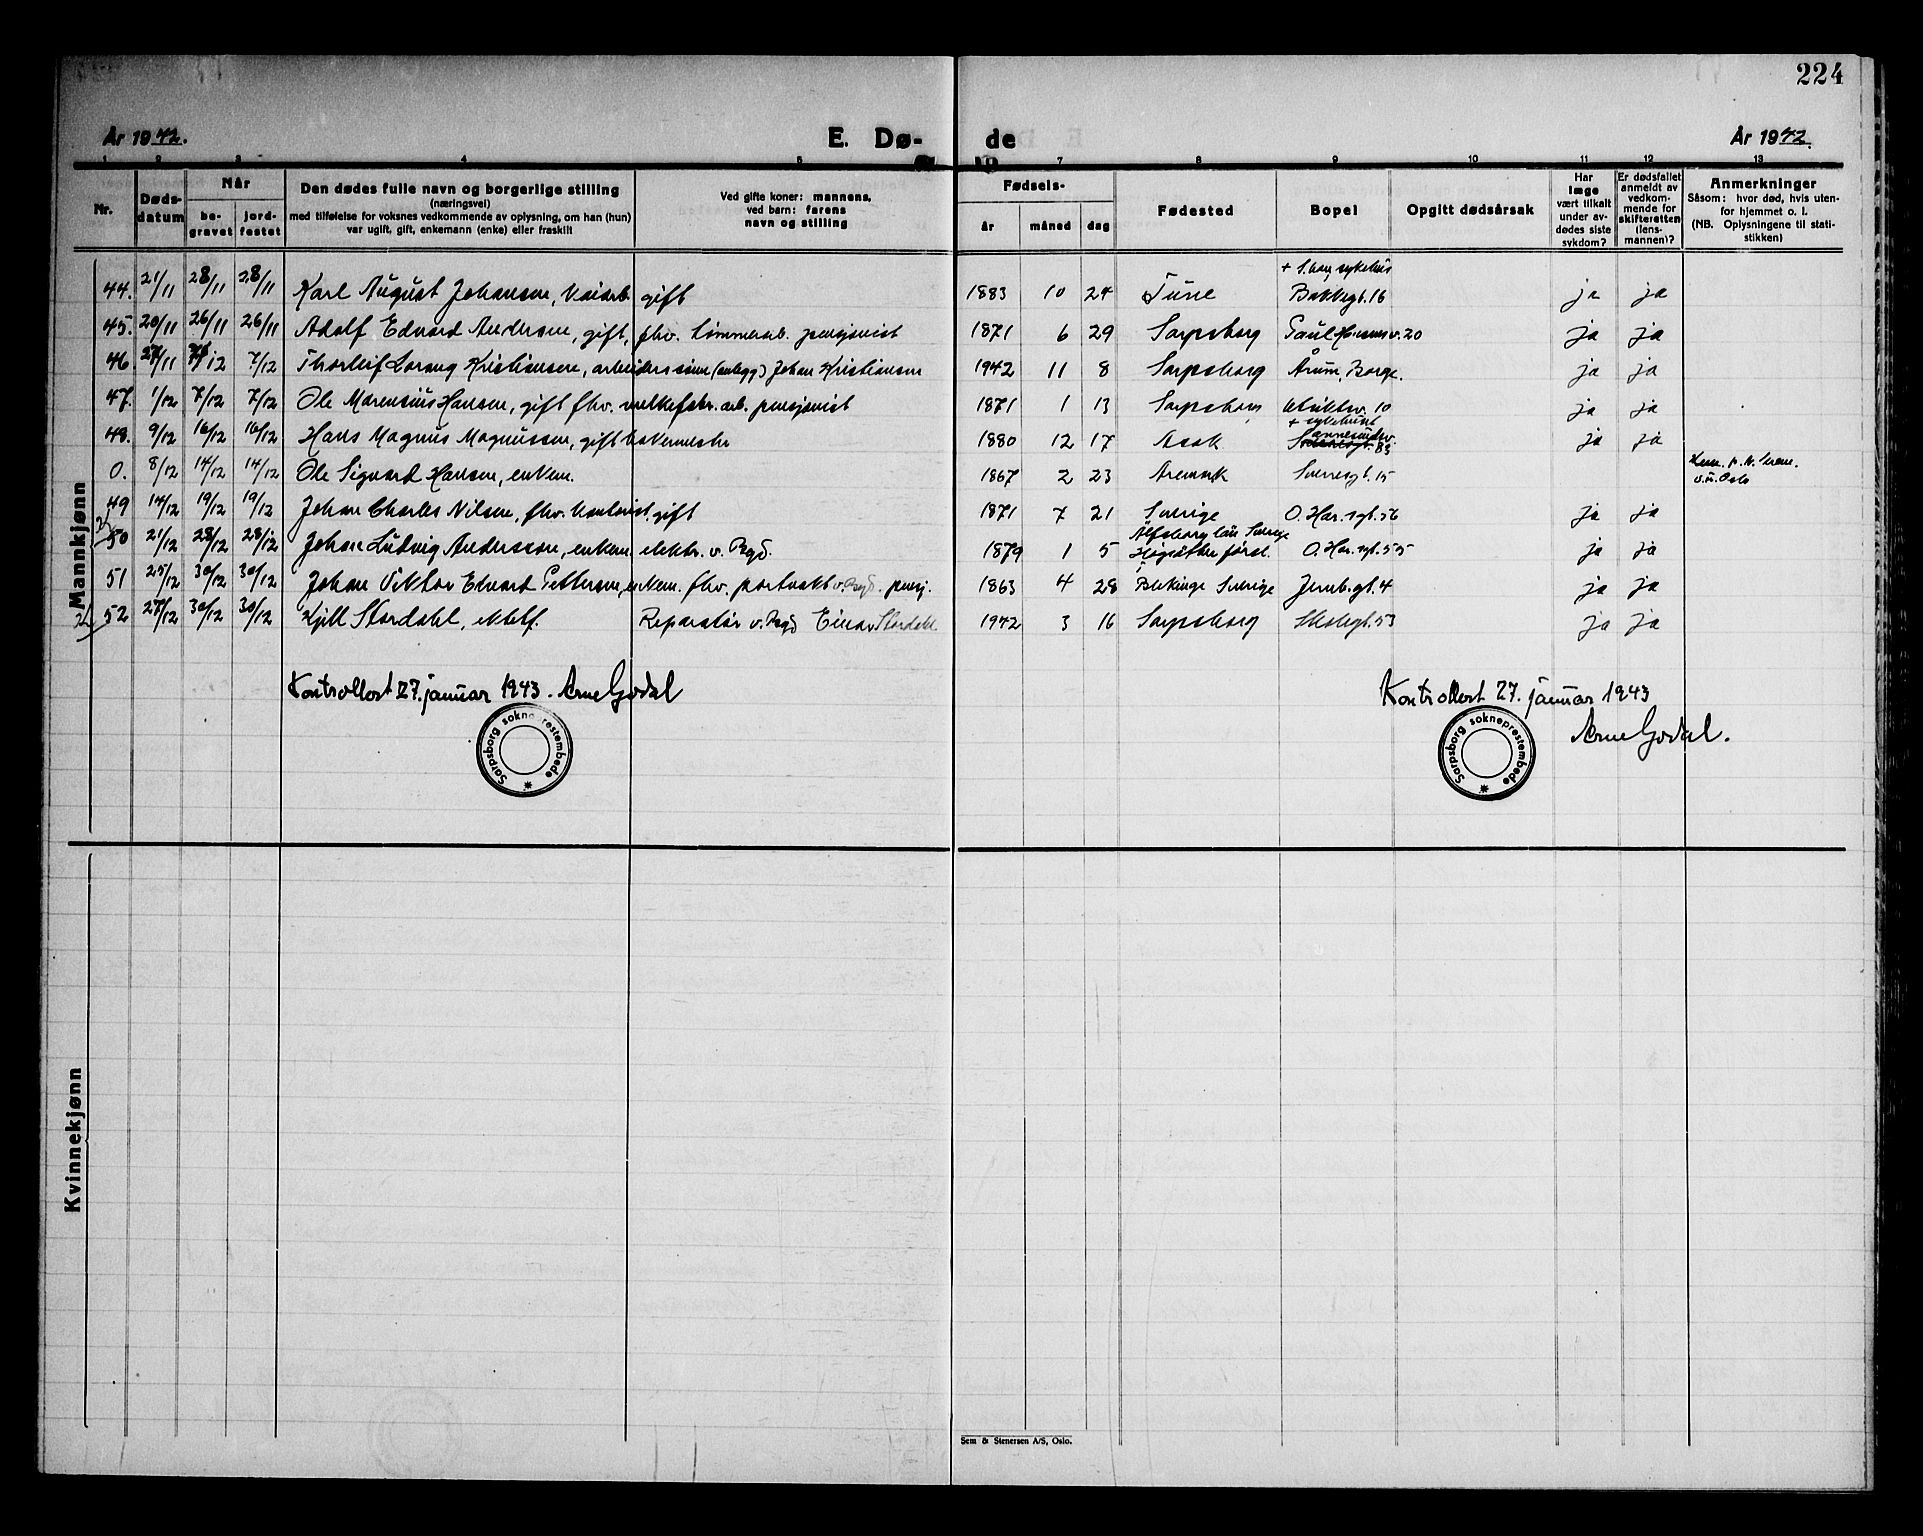 224
År 1942.
E. Dø-
de
År 1942.
1 2 3 4 5 7 8 9 10 11 12 13
Nr.
Døds-
datum
Når
be-
gravet
jord-
festet
Den dødes fulle navn og borgerlige stilling
(næringsvei)
med tilføielse for voksnes vedkommende av oplysning, om han (hun)
var ugift, gift, enkemann (enke) eller fraskilt
Ved gifte koner: mannens,
ved barn: farens
navn og stilling
Fødsels-
år
måned
dag
Fødested
Bopel
Opgitt dødsårsak
Har
læge
vært tilkalt
under av-
dødes siste
sykdom?
Er dødsfallet
anmeldt av
vedkom-
mende for
skifteretten
(lens-
mannen)?
Anmerkninger
Såsom: hvor død, hvis uten-
for hjemmet o. l.
(NB. Oplysningene til stati-
stikken)
Mannkjønn
+ S.borg sykehus
44. 21/11 28/11 28/11 Karl August Johansen, gift 1883 10 24 Tune Bakkegt. 16 ja ja
45. 20/11 26/11 26/11 Adolf Edvard Andersen, gift, fhv. tømmerarb. pensjonist 1871 6 29 Sarpsborg Paul Holmensv. 20 ja ja
46. 27/11 7/12 7/12 Thorleif Lorang Kristiansen, arbeiderssønn (anlegg) Johan Kristiansen 1942 11 8 Sarpsborg Årum, Borge. ja ja
47. 1/12 7/12 7/12 Ole Marensius Hansen, gift fhv. arb. pensjonist 1871 1 13 Sarpsborg 10 ja ja
+ sykehuset
48. 9/12 16/12 16/12 Hans Magnus Magnussen, gift bakermester 1880 12 17 Asak 83 ja ja
0. 8/12 14/12 14/12 Ole Sigvard Hansen, enkem. 1867 2 23 Aremark Sverresgt. 15
v.u. Oslo
49 14/12 19/12 19/12 Johan Charles Nilsen, fhv. gift 1871 7 21 Sverige O. Har. sgt. 56 ja ja
Älfsborg län Sverige
50 21/12 28/12 28/12 Johan Ludvig Andersson, enkem. elektr. v. Bgd. 1879 1 5 O. Har. sgt. 55 ja ja
51 25/12 30/12 30/12 Johan Viktor Edvard Pettersen, enkem. fhv. portvakt v. Bgd. pensj. 1863 4 28 Blekinge Sverige Jernb.gt. 4 ja ja
52 27/12 30/12 30/12 Kjell Stordahl, Reparatør v. Bgd Einar Stordahl 1942 3 16 Sarpsborg Skolegt. 53 ja ja
Kontrollert 27. januar 1943. Arne Godal
Sarpsborg sokneprestembede
Kontrollert 27. januar 1943
Arne Godal.
Sarpsborg sokneprestembede
Kvinnekjønn
Sem & Stenersen A/S, Oslo.